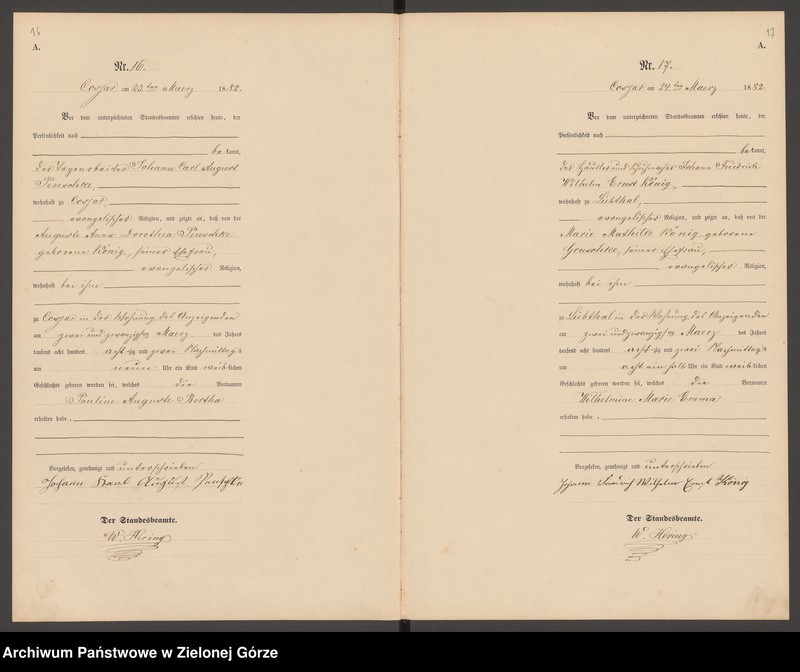 16
A.
Nr. 16.
Cossar am 23. ten Maerz 1882.
Vor dem unterzeichneten Standesbeamten erschien heute, der
Persönlichkeit nach
be kannt,
der Tagearbeiter Johann Carl August
wohnhaft zu Cossar,
evangelischer Religion, und zeigte an, daß von der
Auguste Anna Dorothea
geborene König, seiner Ehefrau,
evangelischer Religion,
wohnhaft bei ihm
zu Cossar in der Wohnung des Anzeigenden
am zwei und zwanzigsten Maerz des Jahres
tausend acht hundert acht zig und zwei Nachmittags
um neun Uhr ein Kind weib lichen
Geschlechts geboren worden sei, welches die Vornamen
Pauline Auguste Bertha
erhalten habe.
Vorgelesen, genehmigt und unterschrieben
Johann Karl August
Der Standesbeamte.
W. Hering
17
A.
Nr. 17.
Cossar am 24. ten Maerz 1882.
Vor dem unterzeichneten Standesbeamten erschien heute, der
Persönlichkeit nach
be kannt,
der Häusler und Schuhmacher Johann Friedrich
Wilhelm Ernst König,
wohnhaft zu Liebthal,
evangelischer Religion, und zeigte an, daß von der
Marie Mathilde König geborene
Gruschke, seiner Ehefrau,
evangelischer Religion,
wohnhaft bei ihm
zu Liebthal in der Wohnung des Anzeigenden
am zwei und zwanzigsten Maerz des Jahres
tausend acht hundert acht zig und zwei Nachmittags
um acht ein halb Uhr ein Kind weib lichen
Geschlechts geboren worden sei, welches die Vornamen
Wilhelmine Marie Emma
erhalten habe.
Vorgelesen, genehmigt und unterschrieben
Johann Friedrich Wilhelm Ernst König
Der Standesbeamte.
W. Hering
Archiwum Państwowe w Zielonej Górze